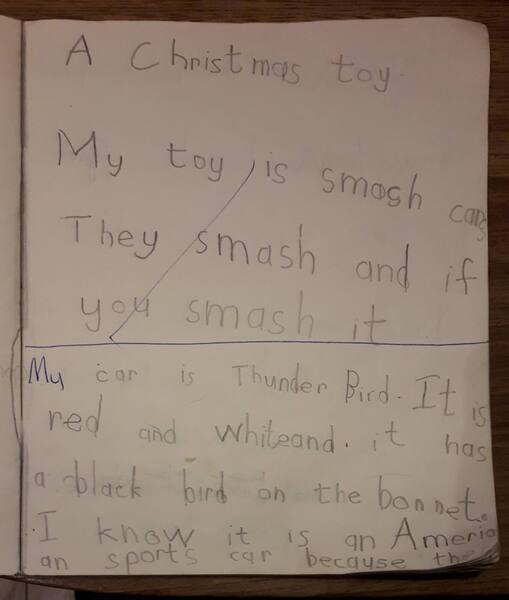 A Christmas toy
My toy is smash cars
They smash and if
you smash it
My car is Thunder Bird. It is
red and whiteand. it has
a black bird on the bonnet.
I know it is an America
an sports car because the